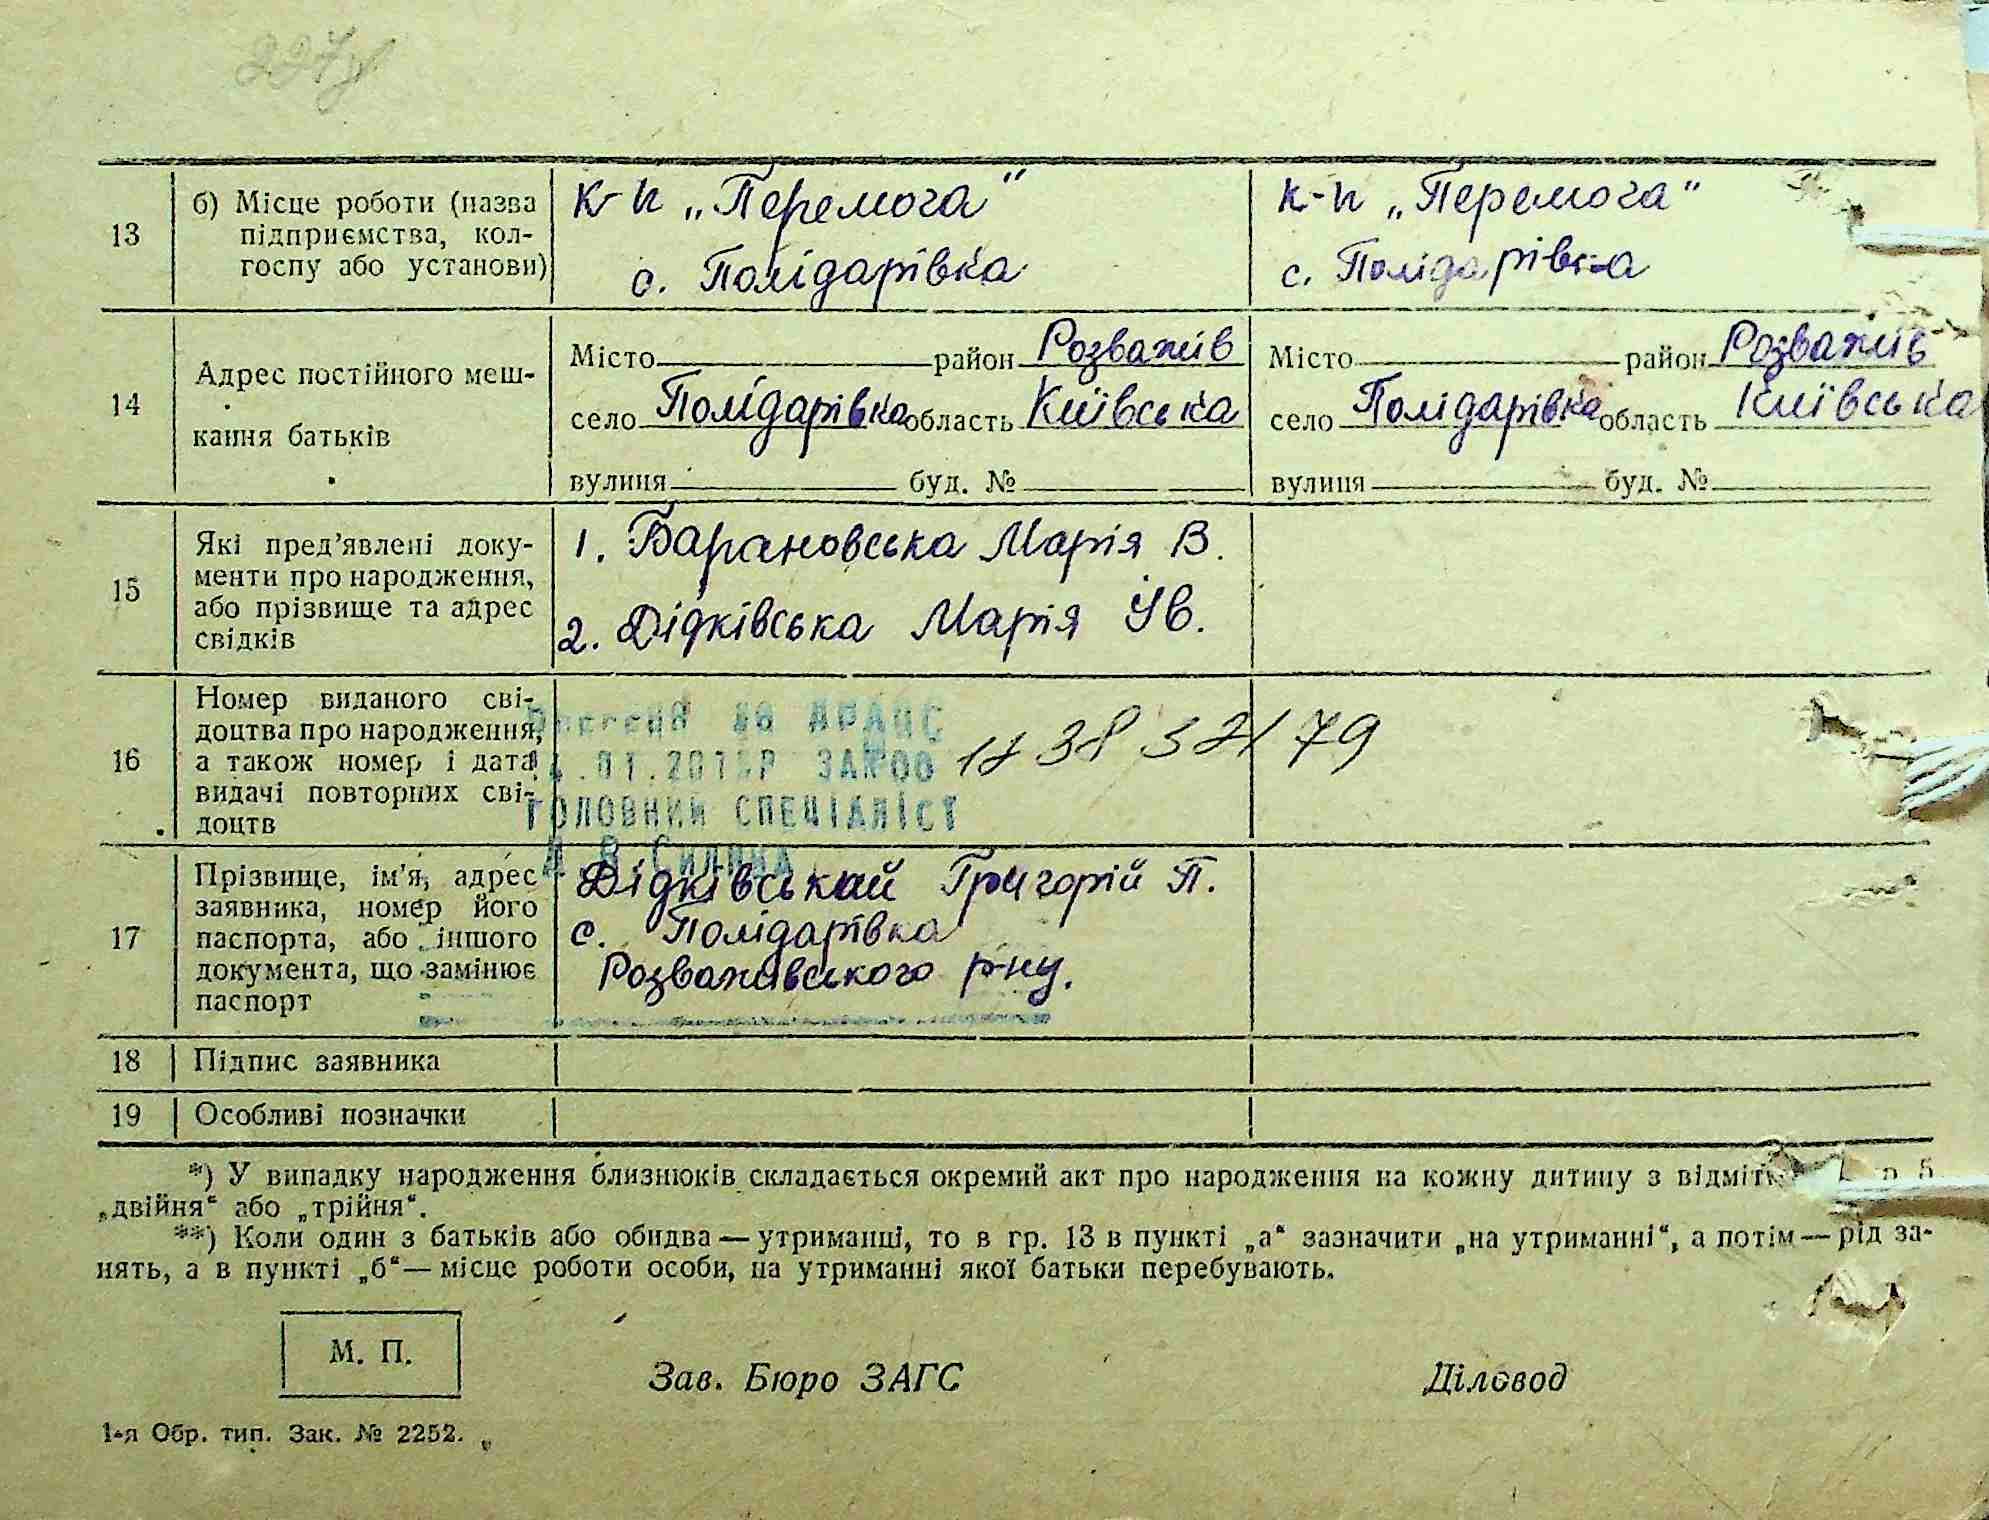 227
13
б) Місце роботи (назва
підприємства, кол-
госпу або установи)
к-п „Перемога"
с. Полідарівка
к-п „Перемога"
с. Полідарівка
14
Адрес постійного меш-
кання батьків
Місто район Розважів
село Полідарівка область Київська
вулиця буд. №
Місто район Розважів
село Полідарівка область Київська
вулиця буд. №
15
Які пред'явлені доку-
менти про народження,
або прізвище та адрес
свідків
1. Барановська Марія В.
2. Дідківська Марія Ів.
16
Номер виданого сві-
доцтва про народження,
а також номер і дата
видачі повторних сві-
доцтв
ДРАЦС
.01.201 Р ЗА №00
ГОЛОВНИЙ СПЕЦІАЛІСТ
17
Прізвище, ім'я, адрес
заявника, номер його
паспорта, або іншого
документа, що замінює
паспорт
Дідківський Григорій П.
с. Полідарівка
Розважівського р-ну.
18
Підпис заявника
19
Особливі позначки
*) У випадку народження близнюків складається окремий акт про народження на кожну дитину з
„двійня“ або „трійня“.
**) Коли один з батьків або обидва — утриманці, то в гр. 13 в пункті „а“ зазначити „на утриманні“, а потім — рід за-
нять, а в пункті „б“ — місце роботи особи, на утриманні якої батьки перебувають.
М. П.
Зав. Бюро ЗАГС
Діловод
1-я Обр. тип. Зак. № 2252.